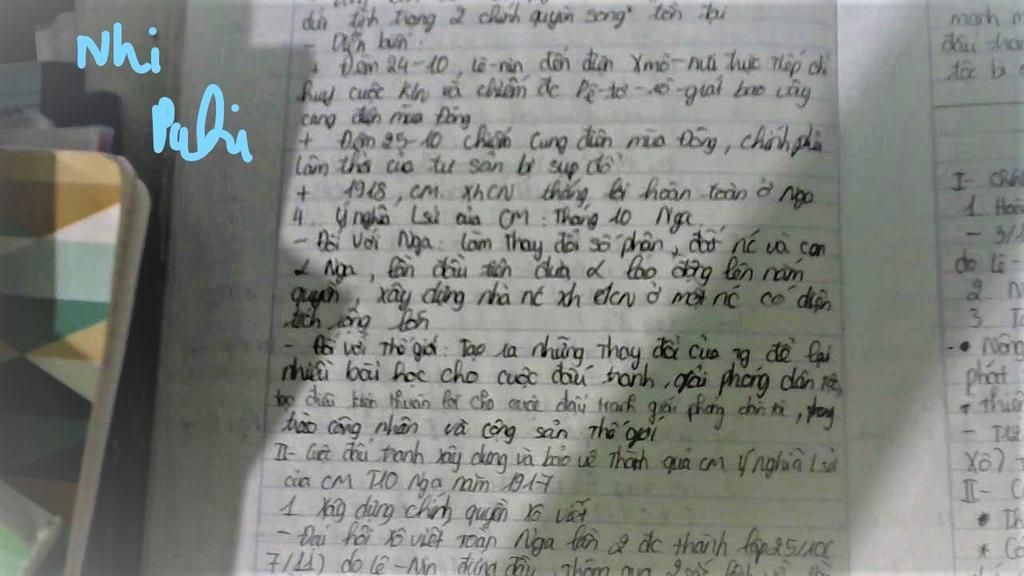 Nhi
Pahi
dứt tình trạng 2 chính quyền song² tồn tại
- Diễn biến:
+ Đêm 24-10, Lê-nin đến điện Xmô-nưi trực tiếp chỉ
huy cuộc kn và chiếm đc Pê-tơ-rô-grat bao vây
cung điện mùa Đông
+ Đêm 25-10 chiếm Cung điện mùa Đông, chính phủ
lâm thời của tư sản bị sụp đổ
+ 1918, CM XHCN thắng lợi hoàn toàn ở Nga
4. Ý nghĩa Lsử của CM Tháng 10 Nga
- Đối với Nga: làm thay đổi số phận, đất nc và con
Nga, lần đầu tiên đưa lao động lên nắm
quyền, xây dựng nhà nc xh ở một nc có diện
tích rộng lớn
- Đối với Thế giới: Tạo ra những thay đổi của để lại
nhiều bài học cho cuộc đấu tranh, giải phóng dân tộc,
tạo điều kiện thuận lợi cho cuộc đấu tranh giải phóng dân tộc, phong
trào công nhân và cộng sản Thế giới
II- Cuộc đấu tranh xây dựng và bảo vệ Thành quả CM Ý nghĩa Lsử
của CM T10 Nga năm 1917
1. Xây dựng chính quyền Xô viết
- Đại hội Xô viết Toàn Nga lần 2 đc thành lập 25/10(
7/11) do Lê-Nin đứng đầu, Thông qua 2
mạnh
đấu tran
tộc bị
I-
1. Hoàn
- 3/1
do Lê-
2. N
3. T
• Nông
phát
+ thuê
- Thủ
Xô)
II- C
• Th
* Cô